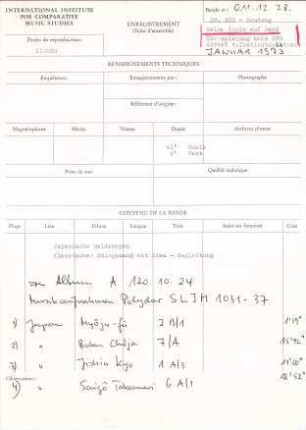 INTERNATIONAL INSTITUTE
FOR COMPARATIVE
MUSIC STUDIES
ENREGISTREMENT
(Fiche d'ensemble)
Bande no: OM.12 28.
SFB - Sendung
keine Kopie auf Band
Droits de reproduction:
JANUAR 1973
RENSEIGNEMENTS TECHNIQUES
Enquêteur:
Enregistrement par:
Photographe
Référence d'origine:
Magnétophone
Micro
Vitesse
Durée
Archives photos
41' Musik
Text
Prise de son
Qualité technique
CONTENU DE LA BANDE
Plage
Lieu
Ethnie
Langue
Titre
Sujet ou fonction
Cote
Japanische Heldensagen
Klassischer Sologesang mit Biwa - Begleitung
von Album A 120.10.24
Musikaufnahmen Polydor SLJM 1031-37
1) Japan Myōju-fu 2 B/1 1'19"
2) " Botan Chōja 7/A
3) " Jishin Kyo 1 A/3
Observations:
4) " Saigō Takamori 6 A/1 12'52"